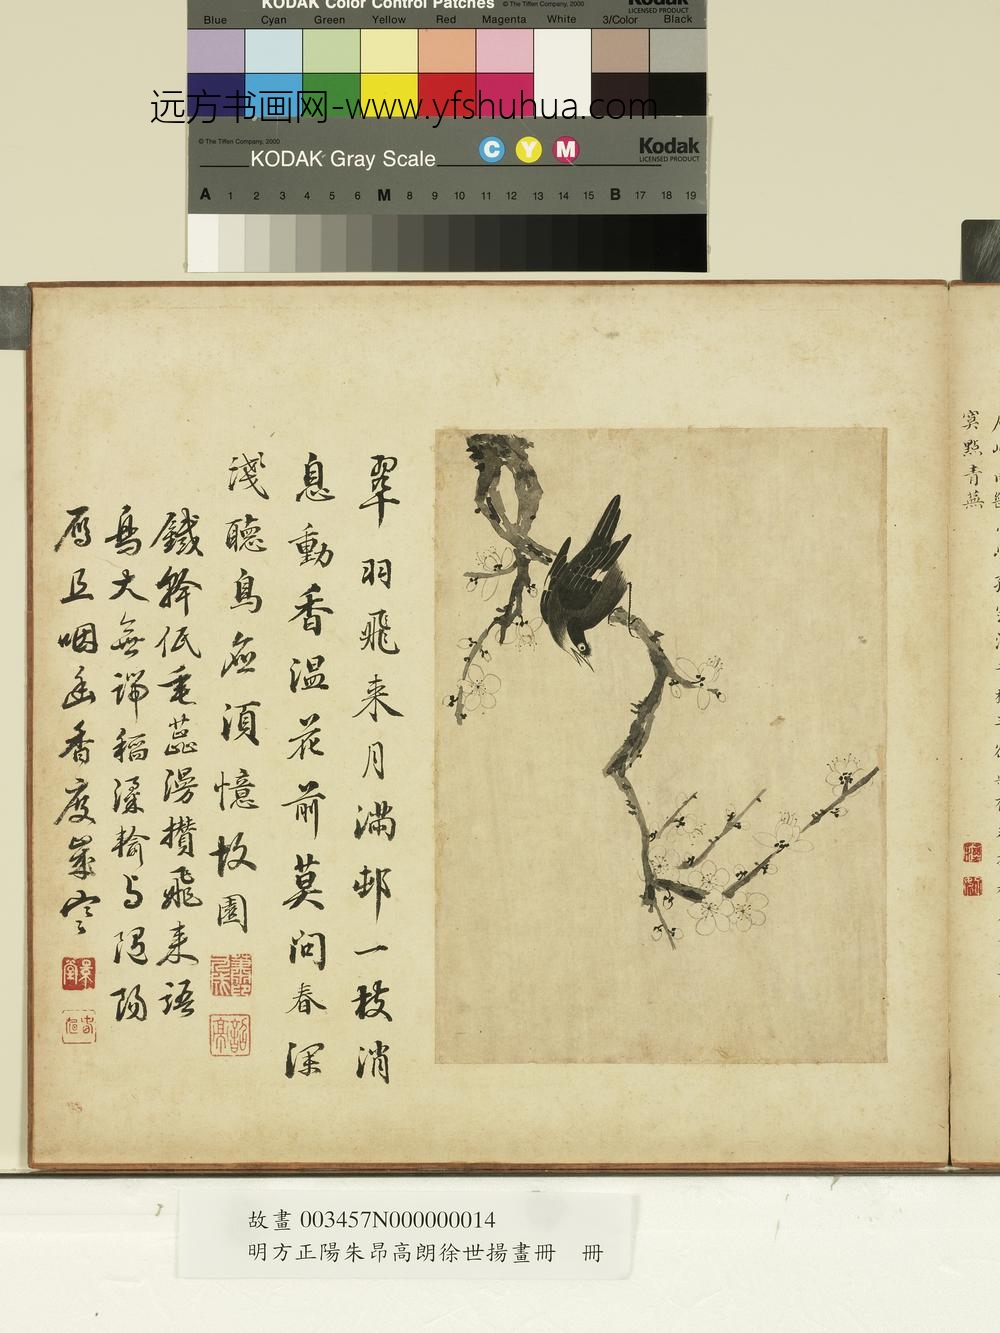 KODAK Color Control Patches
© The Tiffen Company, 2000
Kodak
LICENSED PRODUCT
Blue Cyan Green Yellow Red Magenta White 3/Color Black
远方书画网-www.yfshuhua.com
© The Tiffen Company, 2000
KODAK Gray Scale
C Y M
Kodak
LICENSED PRODUCT
A 1 2 3 4 5 6 M 8 9 10 11 12 13 14 15 B 17 18 19
寞點青蕪
翠羽飛來月滿邨一枝消
息動香溫花前莫問春深
淺聽鳥應須憶故園
鐵幹低垂蕊漫攢飛來語
鳥大無端稻粱輸与隨陽
雁且咽幽香度歲寒
故畫 003457N000000014
明方正陽朱昂高朗徐世揚畫冊 冊